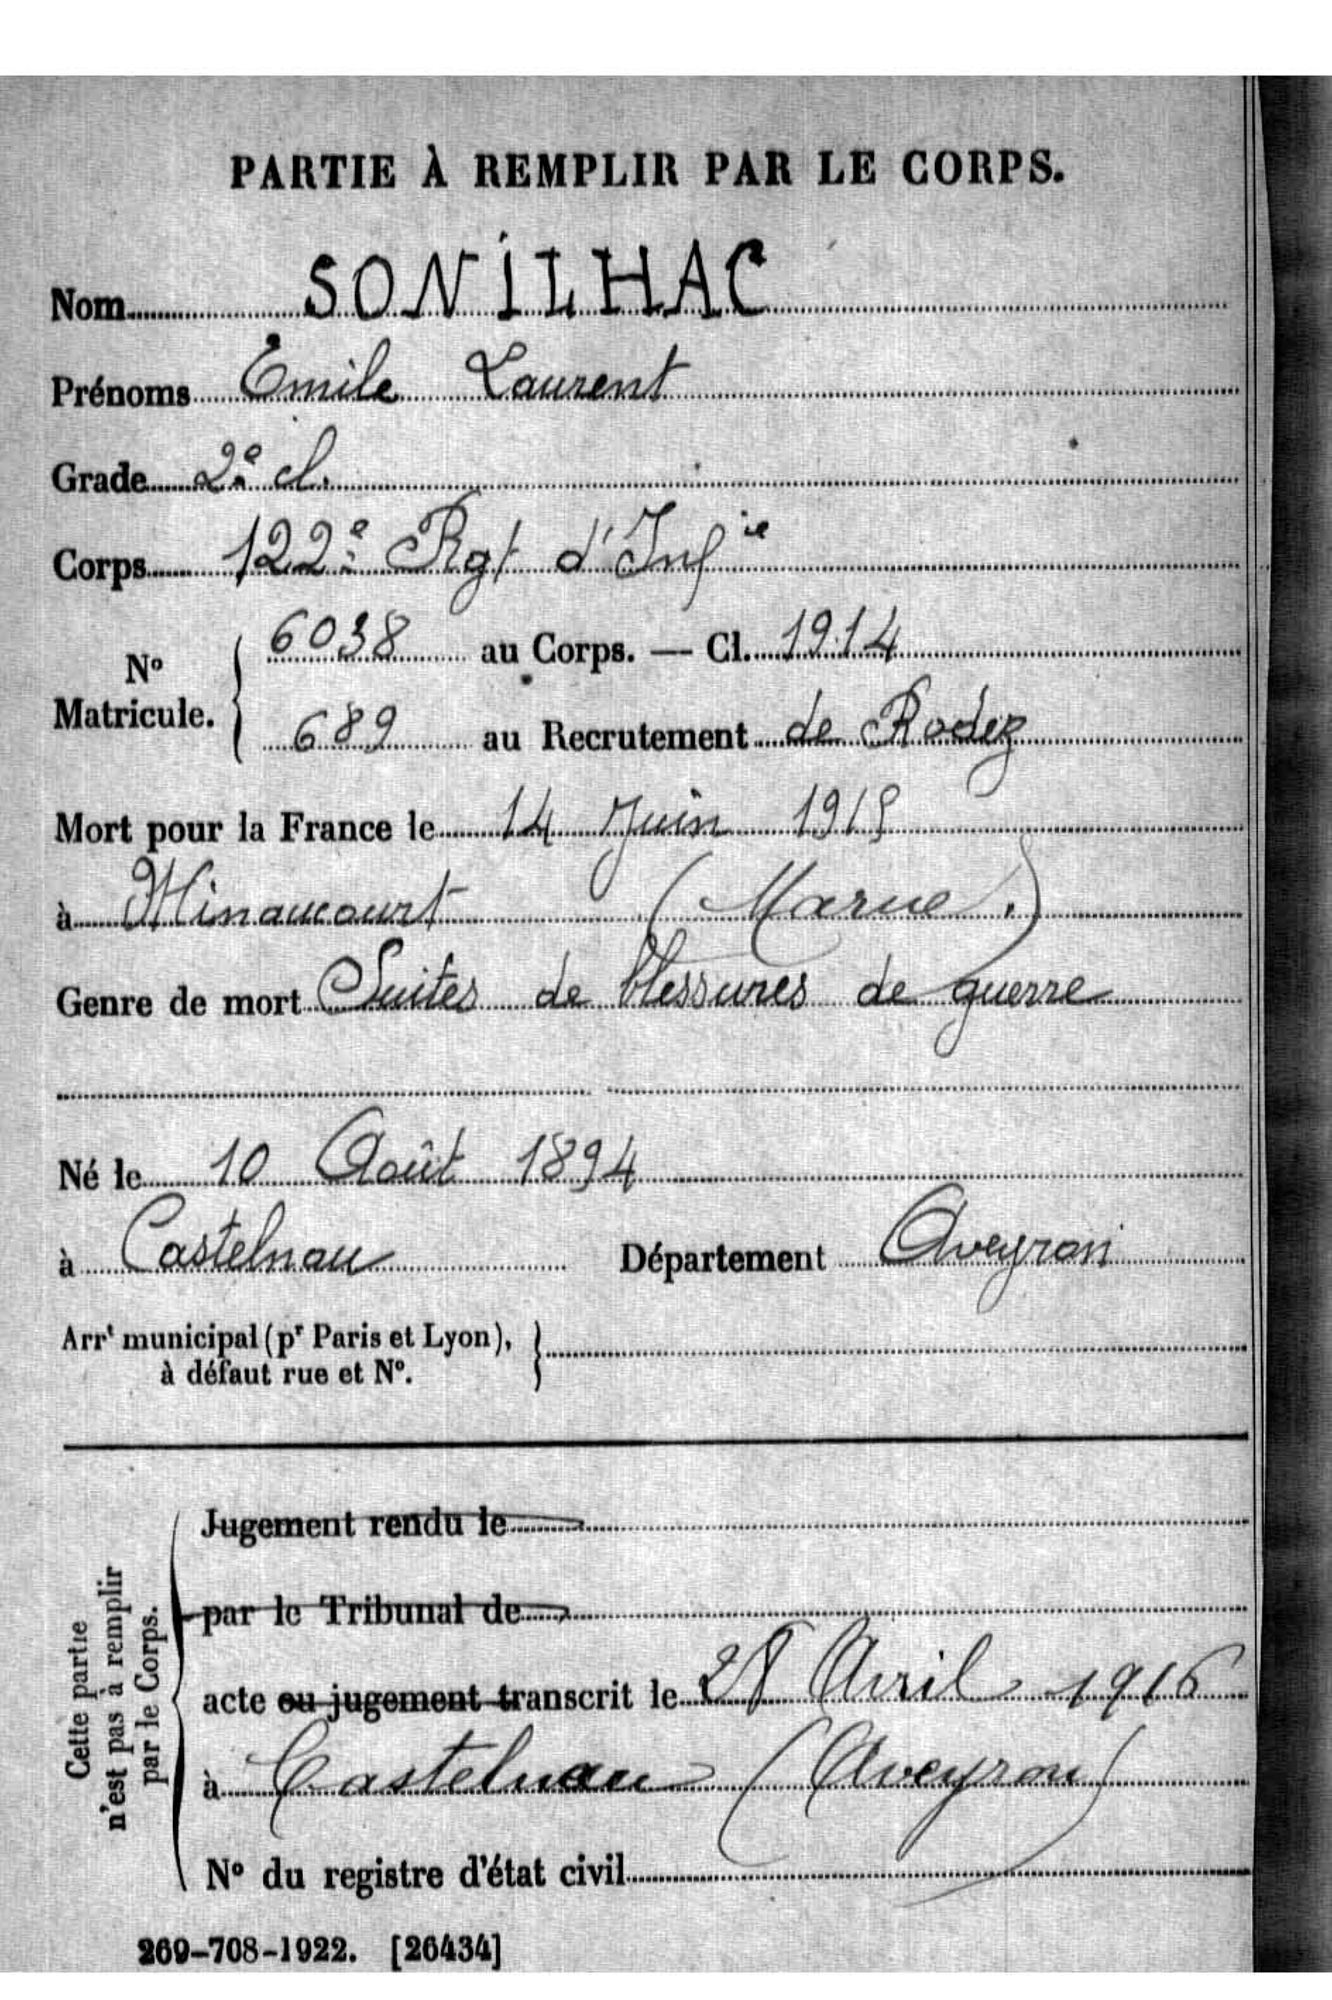 PARTIE À REMPLIR PAR LE CORPS.
Nom SONILHAC
Prénoms Emile Laurent
Grade 2e cl.
Corps 122e Rgt d'Infie
No Matricule. 6038 au Corps. — Cl. 1914
689 au Recrutement de Rodez
Mort pour la France le 14 Juin 1915
à Minaucourt (Marne.)
Genre de mort Suites de blessures de guerre
Né le 10 Août 1894
à Castelnau Département Aveyron
Arrt municipal (pr Paris et Lyon),
à défaut rue et No.
Cette partie
n'est pas à remplir
par le Corps.
Jugement rendu le
par le Tribunal de
acte ou jugement transcrit le 28 Avril 1916
à Castelnau (Aveyron)
No du registre d'état civil
269-708-1922. [26434]